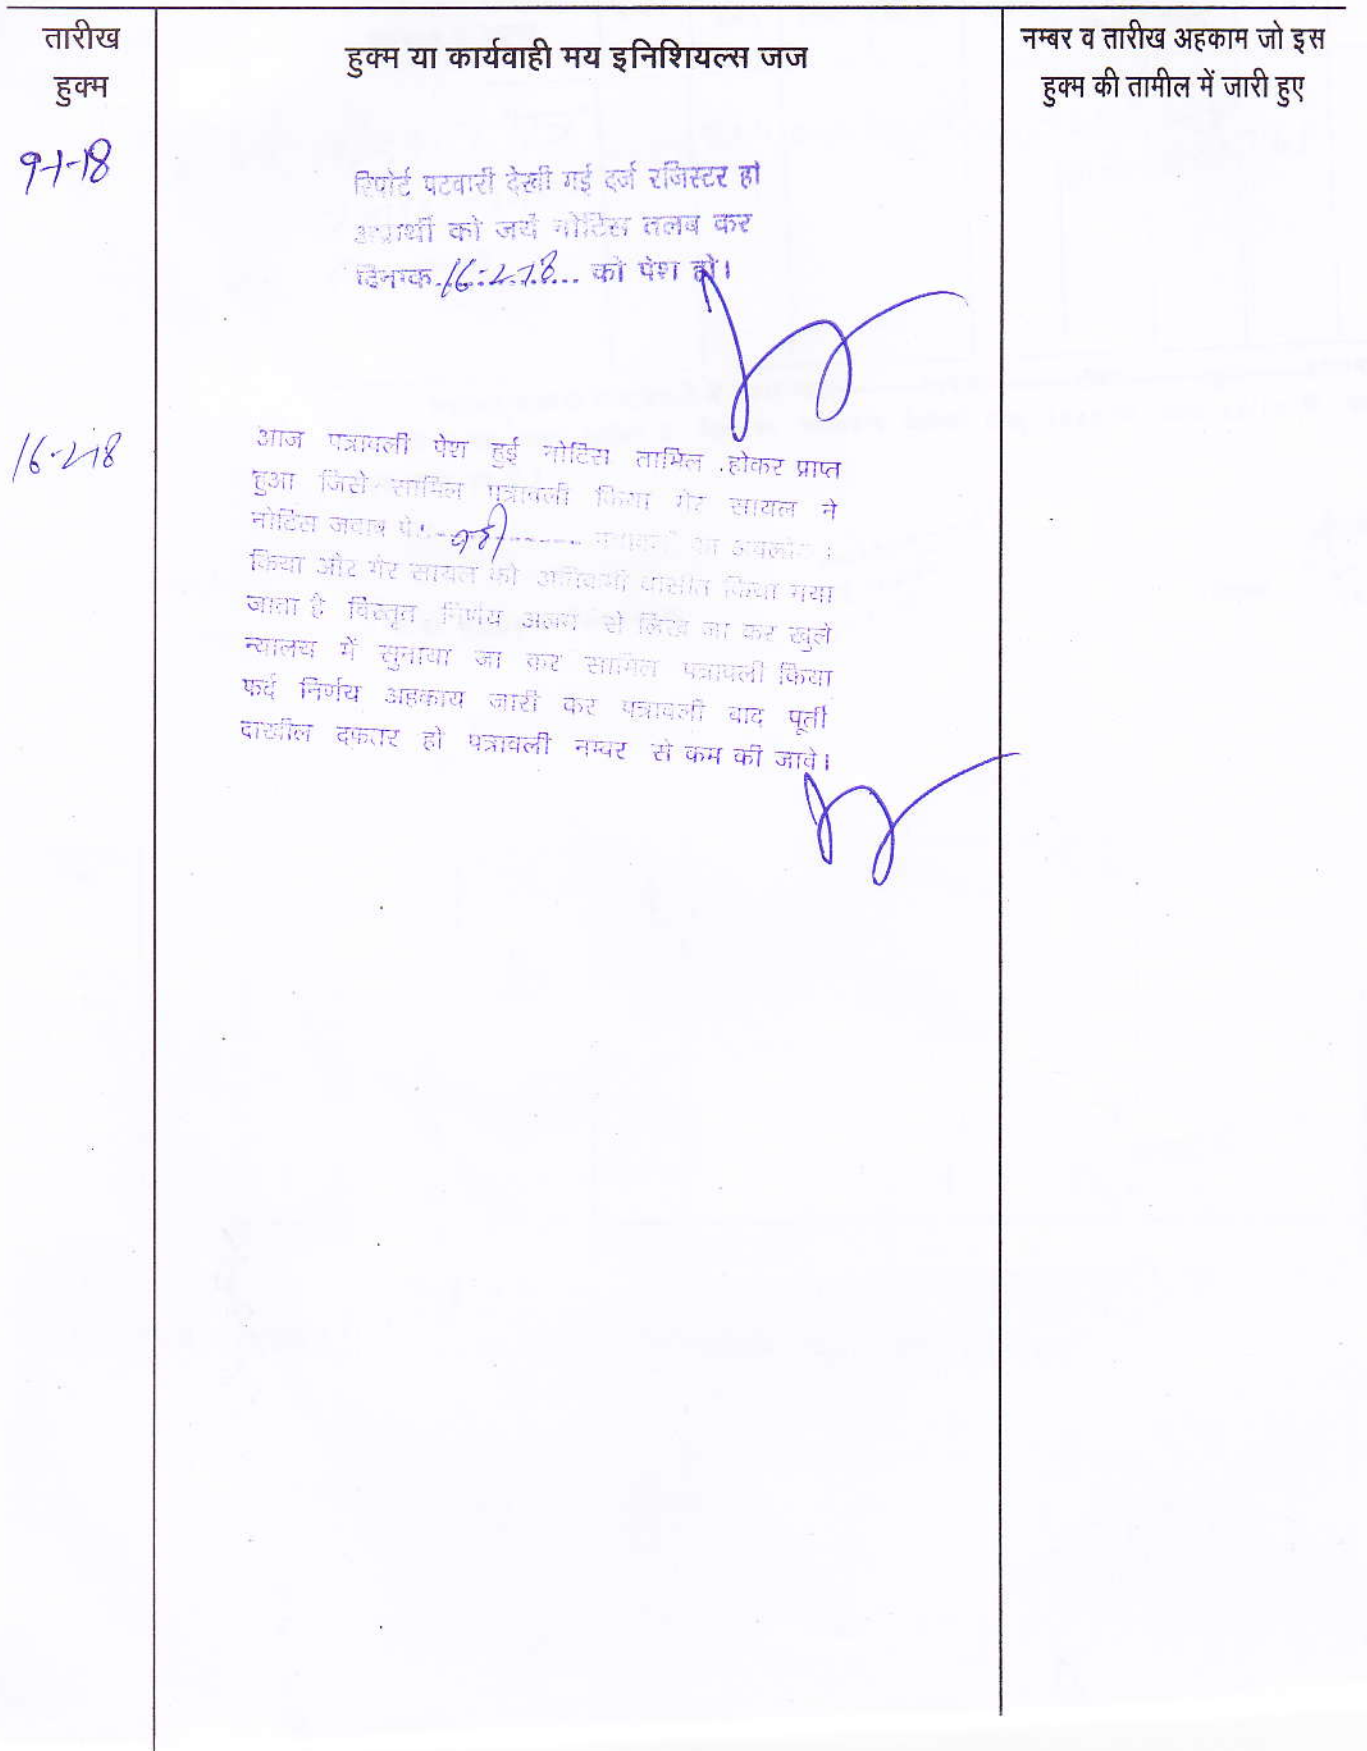 तारीख
हुक्म
हुक्म या कार्यवाही मय इनिशियल्स जज
नम्बर व तारीख अहकाम जो इस
हुक्म की तामील में जारी हुए
9-1-18
रिपोर्ट पटवारी देखी गई दर्ज रजिस्टर हो
अप्रार्थी को जर्ये नोटिस तलब कर
दिनांक 16-2-18 को पेश हो।
16-2-18
आज पत्रावली पेश हुई नोटिस तामिल होकर प्राप्त
हुआ जिसे सामिल पत्रावली किया गेर सायल ने
नोटिस जवाब पेश नही
किया और गेर सायल को किया गया
जाता है विस्तृत निर्णय अलग से लिख जा कर खुले
न्यालय में सुनाया जा कर सामिल पत्रावली किया
फर्द निर्णय अहकाय जारी कर पत्रावली बाद पूर्ती
दाखील दफतर हो पत्रावली नम्बर से कम की जावे।